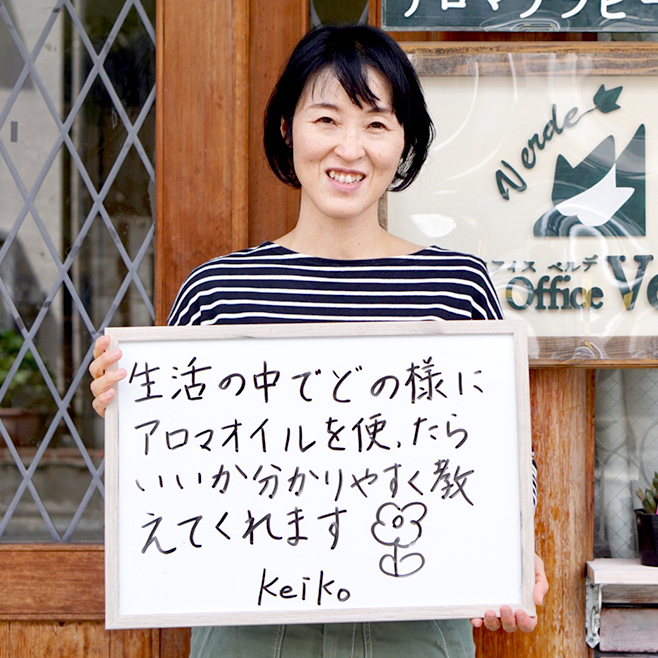 アロマテラピー
Verde
フィス ベルデ
Office Ve
生活の中でどの様に
アロマオイルを使,たら
いいか分かりやすく教
えてくれます
Keiko